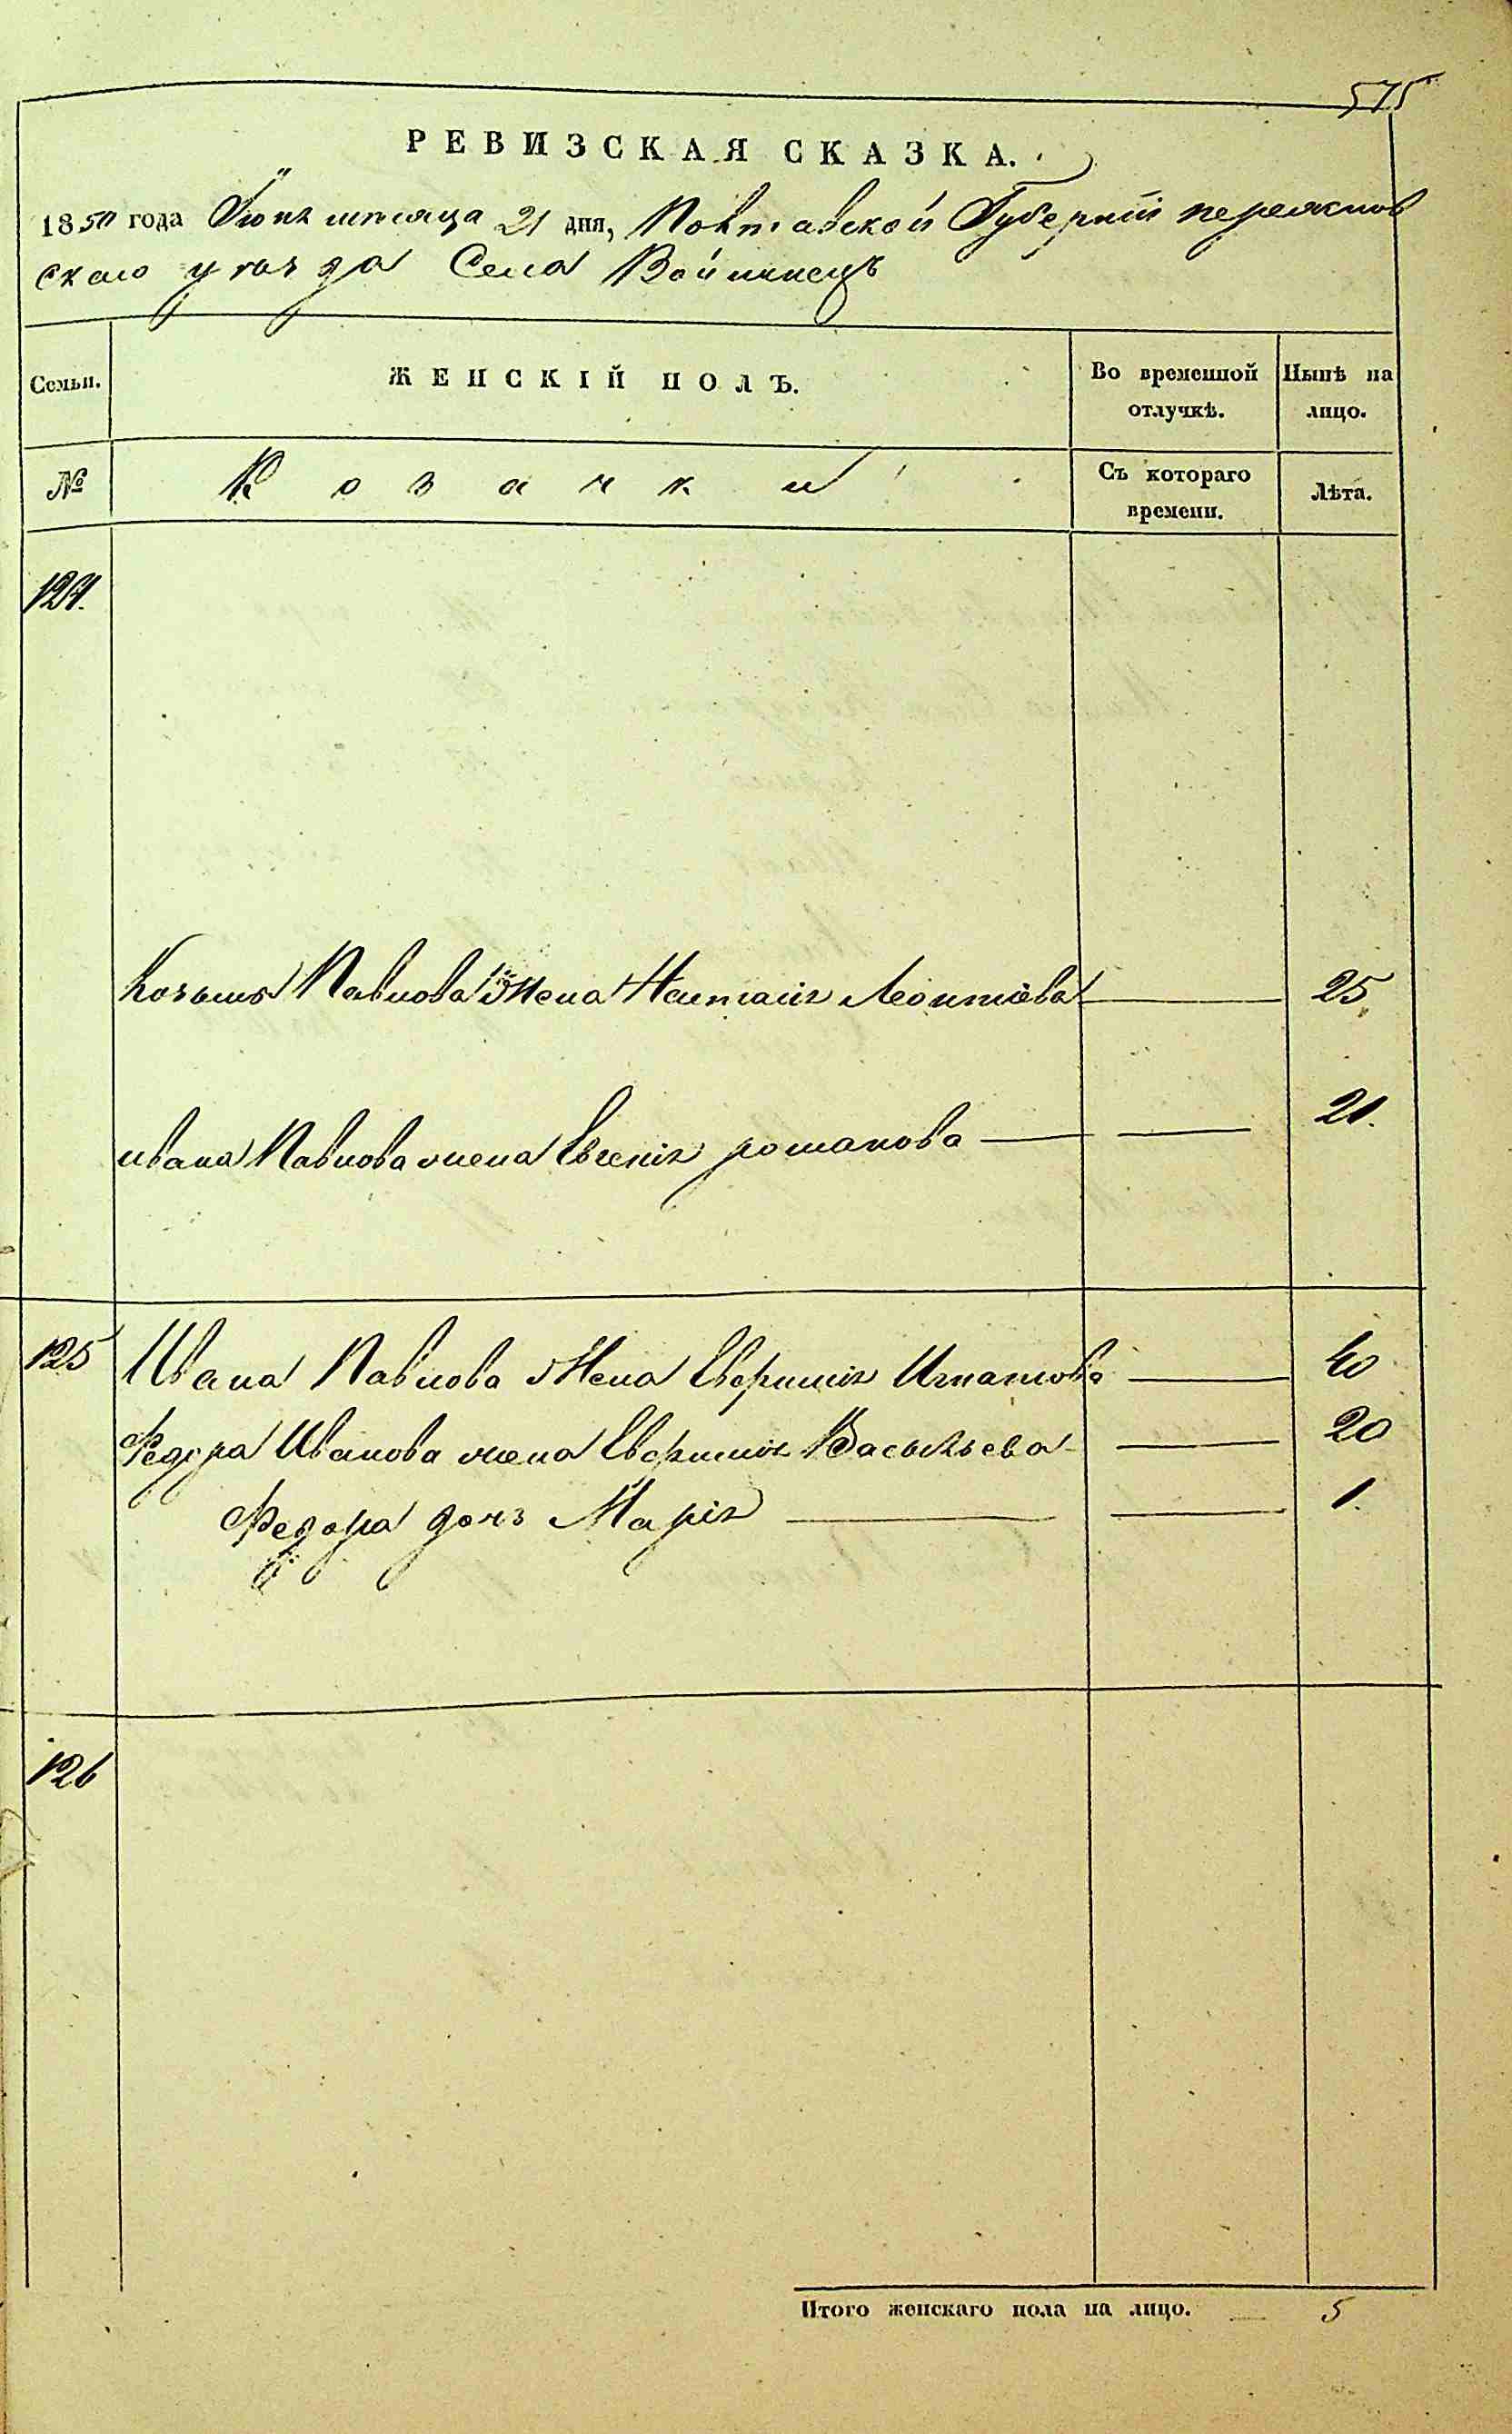 575
РЕВИЗСКАЯ СКАЗКА.
1850 года Іюня мѣсяца 21 дня, Повтавской Губерніи переяслов
скаго уѣзда Села Войнинецъ
Семьи. ЖЕНСКІЙ ПОЛЪ. Во временной отлучкѣ. Нынѣ на лицо.
№ Козачки Съ котораго времени. Лѣта.
124.
Козьмы Павлова жена Настасія Леонтіева 25.
ивана Павлова жена Евгенія романова 21.
125 Ивана Павлова Жена Евфимія Игнатова 40
Федора Иванова жена Евфимія Васильева 20
Федора дочь Марія 1.
126
Итого женскаго пола на лицо. 5